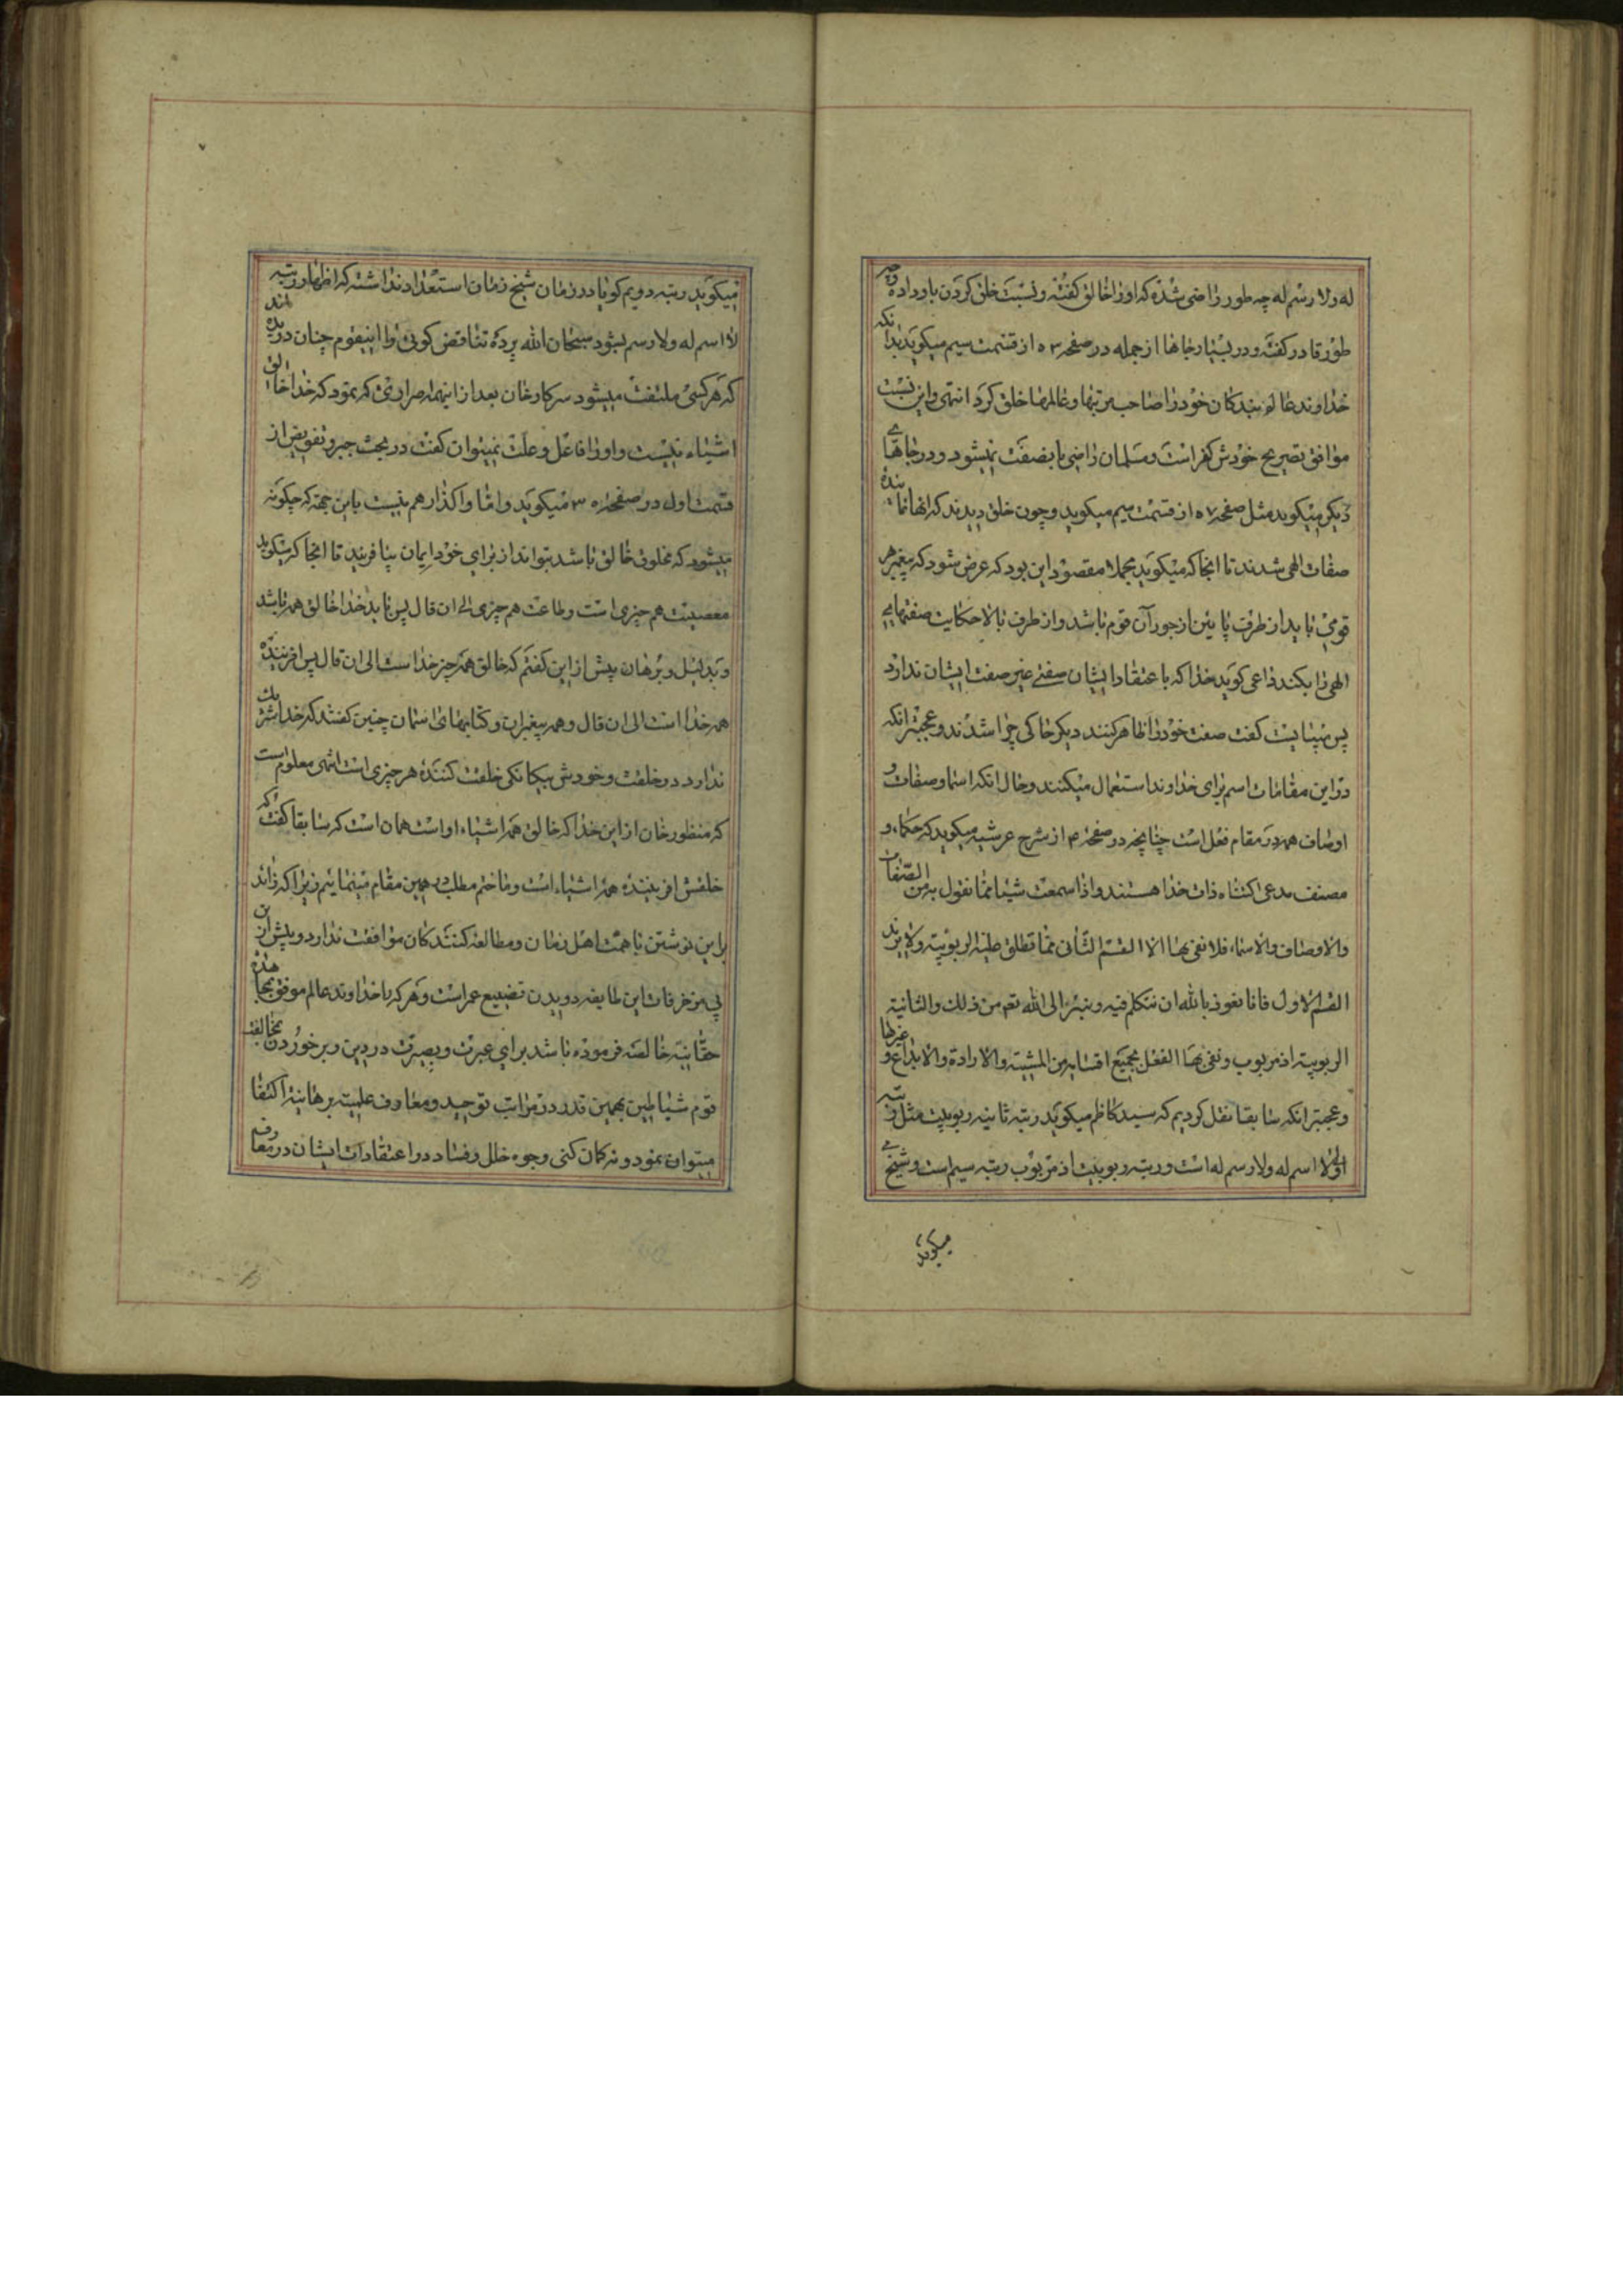 له ولا رسم له چه طور راضی شده که او را خالق گفته و نسبت خلق کردن باو داده وچه
طور قادر گفته و در بسیار جاها از جمله در صفحه ۵۳ از قسمت سیم میگوید بدانکه
خداوند عالم بندگان خود را صاحب مرتبها و عالمها خلق کرد انتهی و این نسبت
موافق تصریح خودش کفر است و مسلمان راضی باینصفت نمیشود و در جاهای
دیگر میگوید مثل صفحه ۵۷ از قسمت سیم میگوید و چون خلق دیدند که انها نماینده
صفات الهی شدند تا انجا که میگوید مجملا مقصود این بود که عرض شود که پیغمبر هر
قومی باید از طرف پائین از جور آن قوم باشد و از طرف بالا حکایت صفتهای
الهی را بکند داعی گوید خدا که باعتقاد ایشان صفتی غیر صفت ایشان ندارد
پس میبایست گفت صفت خود را ظاهر کنند دیگر حاکی چرا شدند و عجبتر انکه
در این مقامات اسم برای خداوند استعمال میکنند و حال انکه اسما و صفات و
اوصاف همه در مقام فعل است چنانچه در صفحه ۴ از شرح عرشیه میگوید که حکماء و
مصنف مدعی اکتناه ذات خدا هستند و اذا سمعت شیئا مما نقول به من الصفات
والاوصاف والاسماء فلا نعنی بها الا القسم الثانی مما تطلق علیه الربوبیة ولا یرید
القسم الاول فانا نعوذ بالله ان نتکلم فیه و نبرء الی الله تعم من ذلك والثانیة
الربوبیة اذ مربوب و نعنی بها الفعل بجمیع اقسامه من المشیة والارادة والابداع و غیرها
و عجبتر انکه سابقا نقل کردیم که سید کاظم میگوید رتبه ثانیه ربوبیت مثل رتبه
اولی لا اسم له ولا رسم له است و رتبه ربوبیت اذ مربوب رتبه سیم است و شیخ
میگوید
میگوید رتبه دویم گویا در زمان شیخ زمان استعداد نداشته که اظهار رتبه
لا اسم له ولا رسم بشود سبحان الله پرده تناقض گوئی را اینقوم چنان دریده اند
که هر کسی ملتفت میشود سرکار خان بعد از اینهمه اصراری که نمود که خدا خالق
اشیاء نیست و او را فاعل و علت نمیتوان گفت در بحث جبر و تفویض از
قسمت اول در صفحه ۳۰۵ میگوید و اما واگذار هم نیست باین جهة که چگونه
میشود که مخلوق خالق باشد بتواند از برای خود ایمان بیافریند تا انجا که میگوید
معصیت هم چیزی است و طاعت هم چیزی الی ان قال پس باید خدا خالق همه باشد
و بدلیل و برهان پیش از این گفتم که خالق همه چیز خداست الی ان قال پس افریننده
همه خدا است الی ان قال و همه پیغمبران و کتابهای اسمان چنین گفتند که خدا شریک
ندارد در خلقت و خودش بیگانگی خلقت کننده هر چیزی است انتهی معلوم است
که منظور خان از این خدا که خالق همه اشیاء او است همان است که سابقا گفت که
خلقش افریننده همه اشیاء است و ما ختم مطلب در همین مقام مینمائیم زیرا که زائد
براین نوشتن با همت اهل زمان و مطالعه کنندگان موافقت ندارد و بیش از این
پی مزخرفات این طایفه دویدن تضییع عمر است و هر که را خداوند عالم موفق بمجاهده
حقانیة خالصه فرموده باشد برای عبرت و بصیرت در دین و برخوردن بمخالفت
قوم شیاطین بهمین قدر در مراتب توحید و معارف علمیه برهانیه اکتفا
میتوان نمود و نه گمان کنی وجوه خلل و فساد در اعتقادات ایشان در معارف